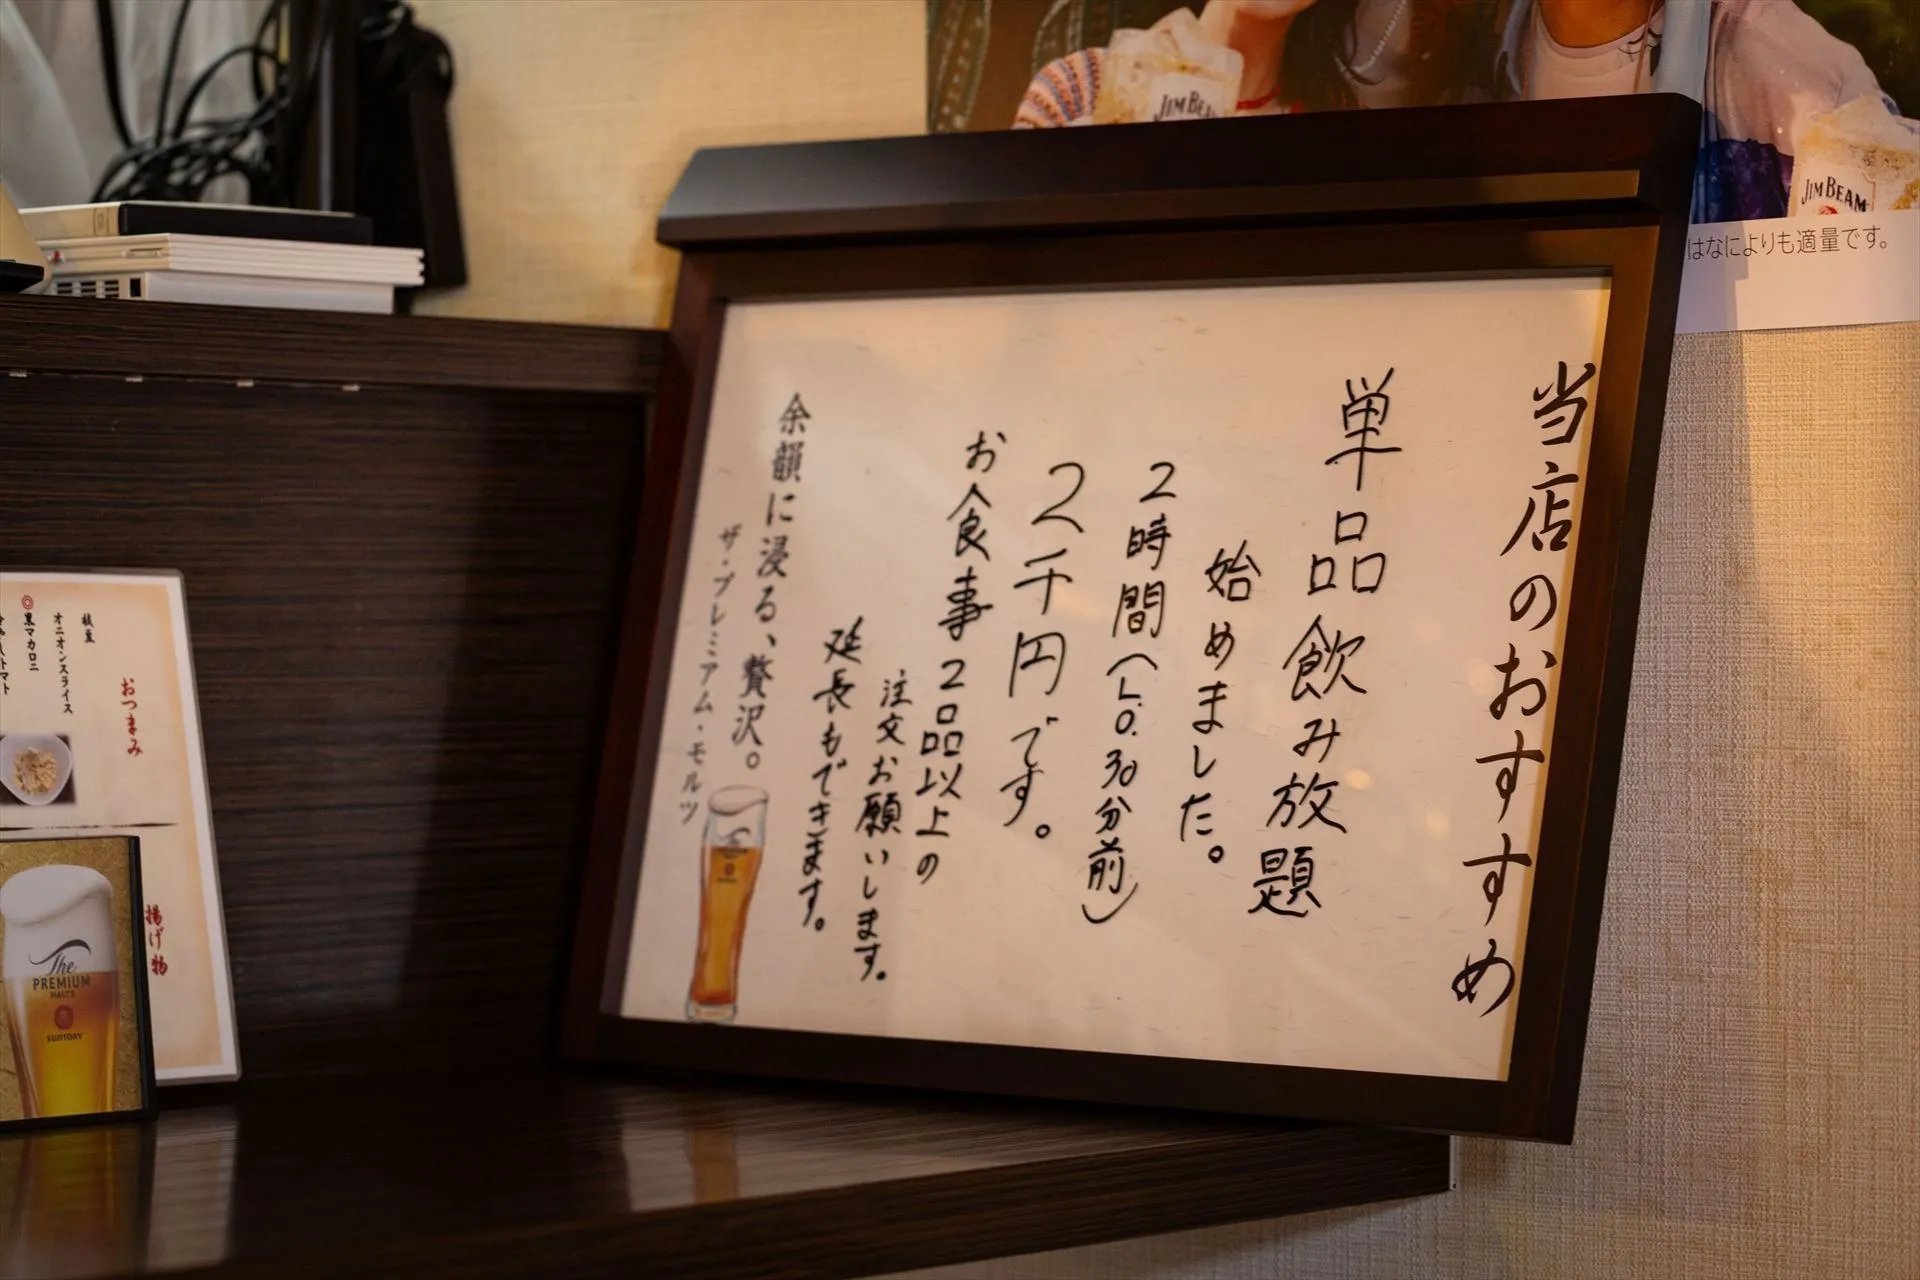 当店のおすすめ
単品飲み放題
始めました。
2時間(L.O.30分前)
2千円です。
お食事2品以上の
注文お願いします。
延長もできます。
余韻に浸る、贅沢。
ザ・プレミアム・モルツ
JIM BEAM
はなによりも適量です。
おつまみ
枝豆
オニオンスライス
黒マカロニ
揚げ物
The
PREMIUM
MALT'S
SUNTORY